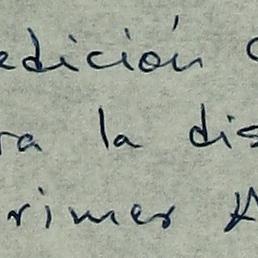 edición
ra la dis
rimer